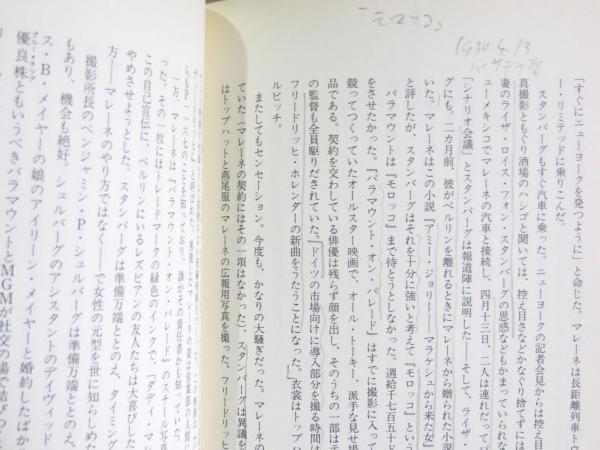 「モロッコ」
1930.4.13
「すぐにニューヨークを発つように」と命じた。マレーネは長距離列車トウ
ー・リミテッドに乗りこんだ。
スタンバーグもすぐ汽車に乗った。ニューヨークの記者会見からは控え目
真撮影ともぐり酒場のハシゴと聞いては、控え目さなどかなぐり捨てずには
妻のライザ・ロイス・フォン・スタンバーグの思惑などもかまっていられな
ューメキシコでマレーネの汽車と接続し、四月十三日、二人は連れだってパ
「シナリオ会議」とスタンバーグは報道陣に説明した――そして、ライザ・
グにも。二カ月前、彼がベルリンを離れるときにマレーネから贈られた小説
いた。マレーネはこの小説『アミー・ジョリー――マラケシュから来た女』
と評したが、スタンバーグはそれを十分に強いと考えて『モロッコ』という
パラマウントは『モロッコ』まで待とうとしなかった。週給千七百五十ド
をさせたかった。『パラマウント・オン・パレード』はすでに撮影に入って
競ってつくっていたオールスター映画で、オール・トーキー、派手な見せ場
品である。契約を交わしている俳優は残らず顔を出し、そのうちの一部はテ
の監督も全員駆りだされていた。ドイツの市場向けに導入部分を撮る時間は
フリードリッヒ・ホレンダーの新曲をうたうことになった。衣裳はトップハ
ルビッチ。
またしてもセンセーション。今度も、かなりの大騒ぎだった。マレーネの
ていた(マレーネの契約にはその一項はなかった)、スタンバーグは異議を
はトップハットと燕尾服のマレーネの広報用写真を撮った。フリードリッヒ
一方、マレーネは『パラマウント・オン・パレード』のスチール写真
った。その一枚にはトレードマークの緑色のインクで、「ダディ・マ
この自己宣伝に、ベルリンにいるレズビアンの友人たちは大喜びした
やめさせようとした。スタンバーグは準備万端ととのえ、タイミング
方――マレーネのやり方ではなく――で女性の元型を世に知らしめた
撮影所長のベンジャミン・P・シュルバーグは準備万端ととのえ、
もあり、機会も絶好。シュルバーグのアシスタントのデイヴィッド
ス・B・メイヤーの娘のアイリーン・メイヤーと婚約したばか
優良株ともいうべきパラマウントとMGMが社交の場で結びつ